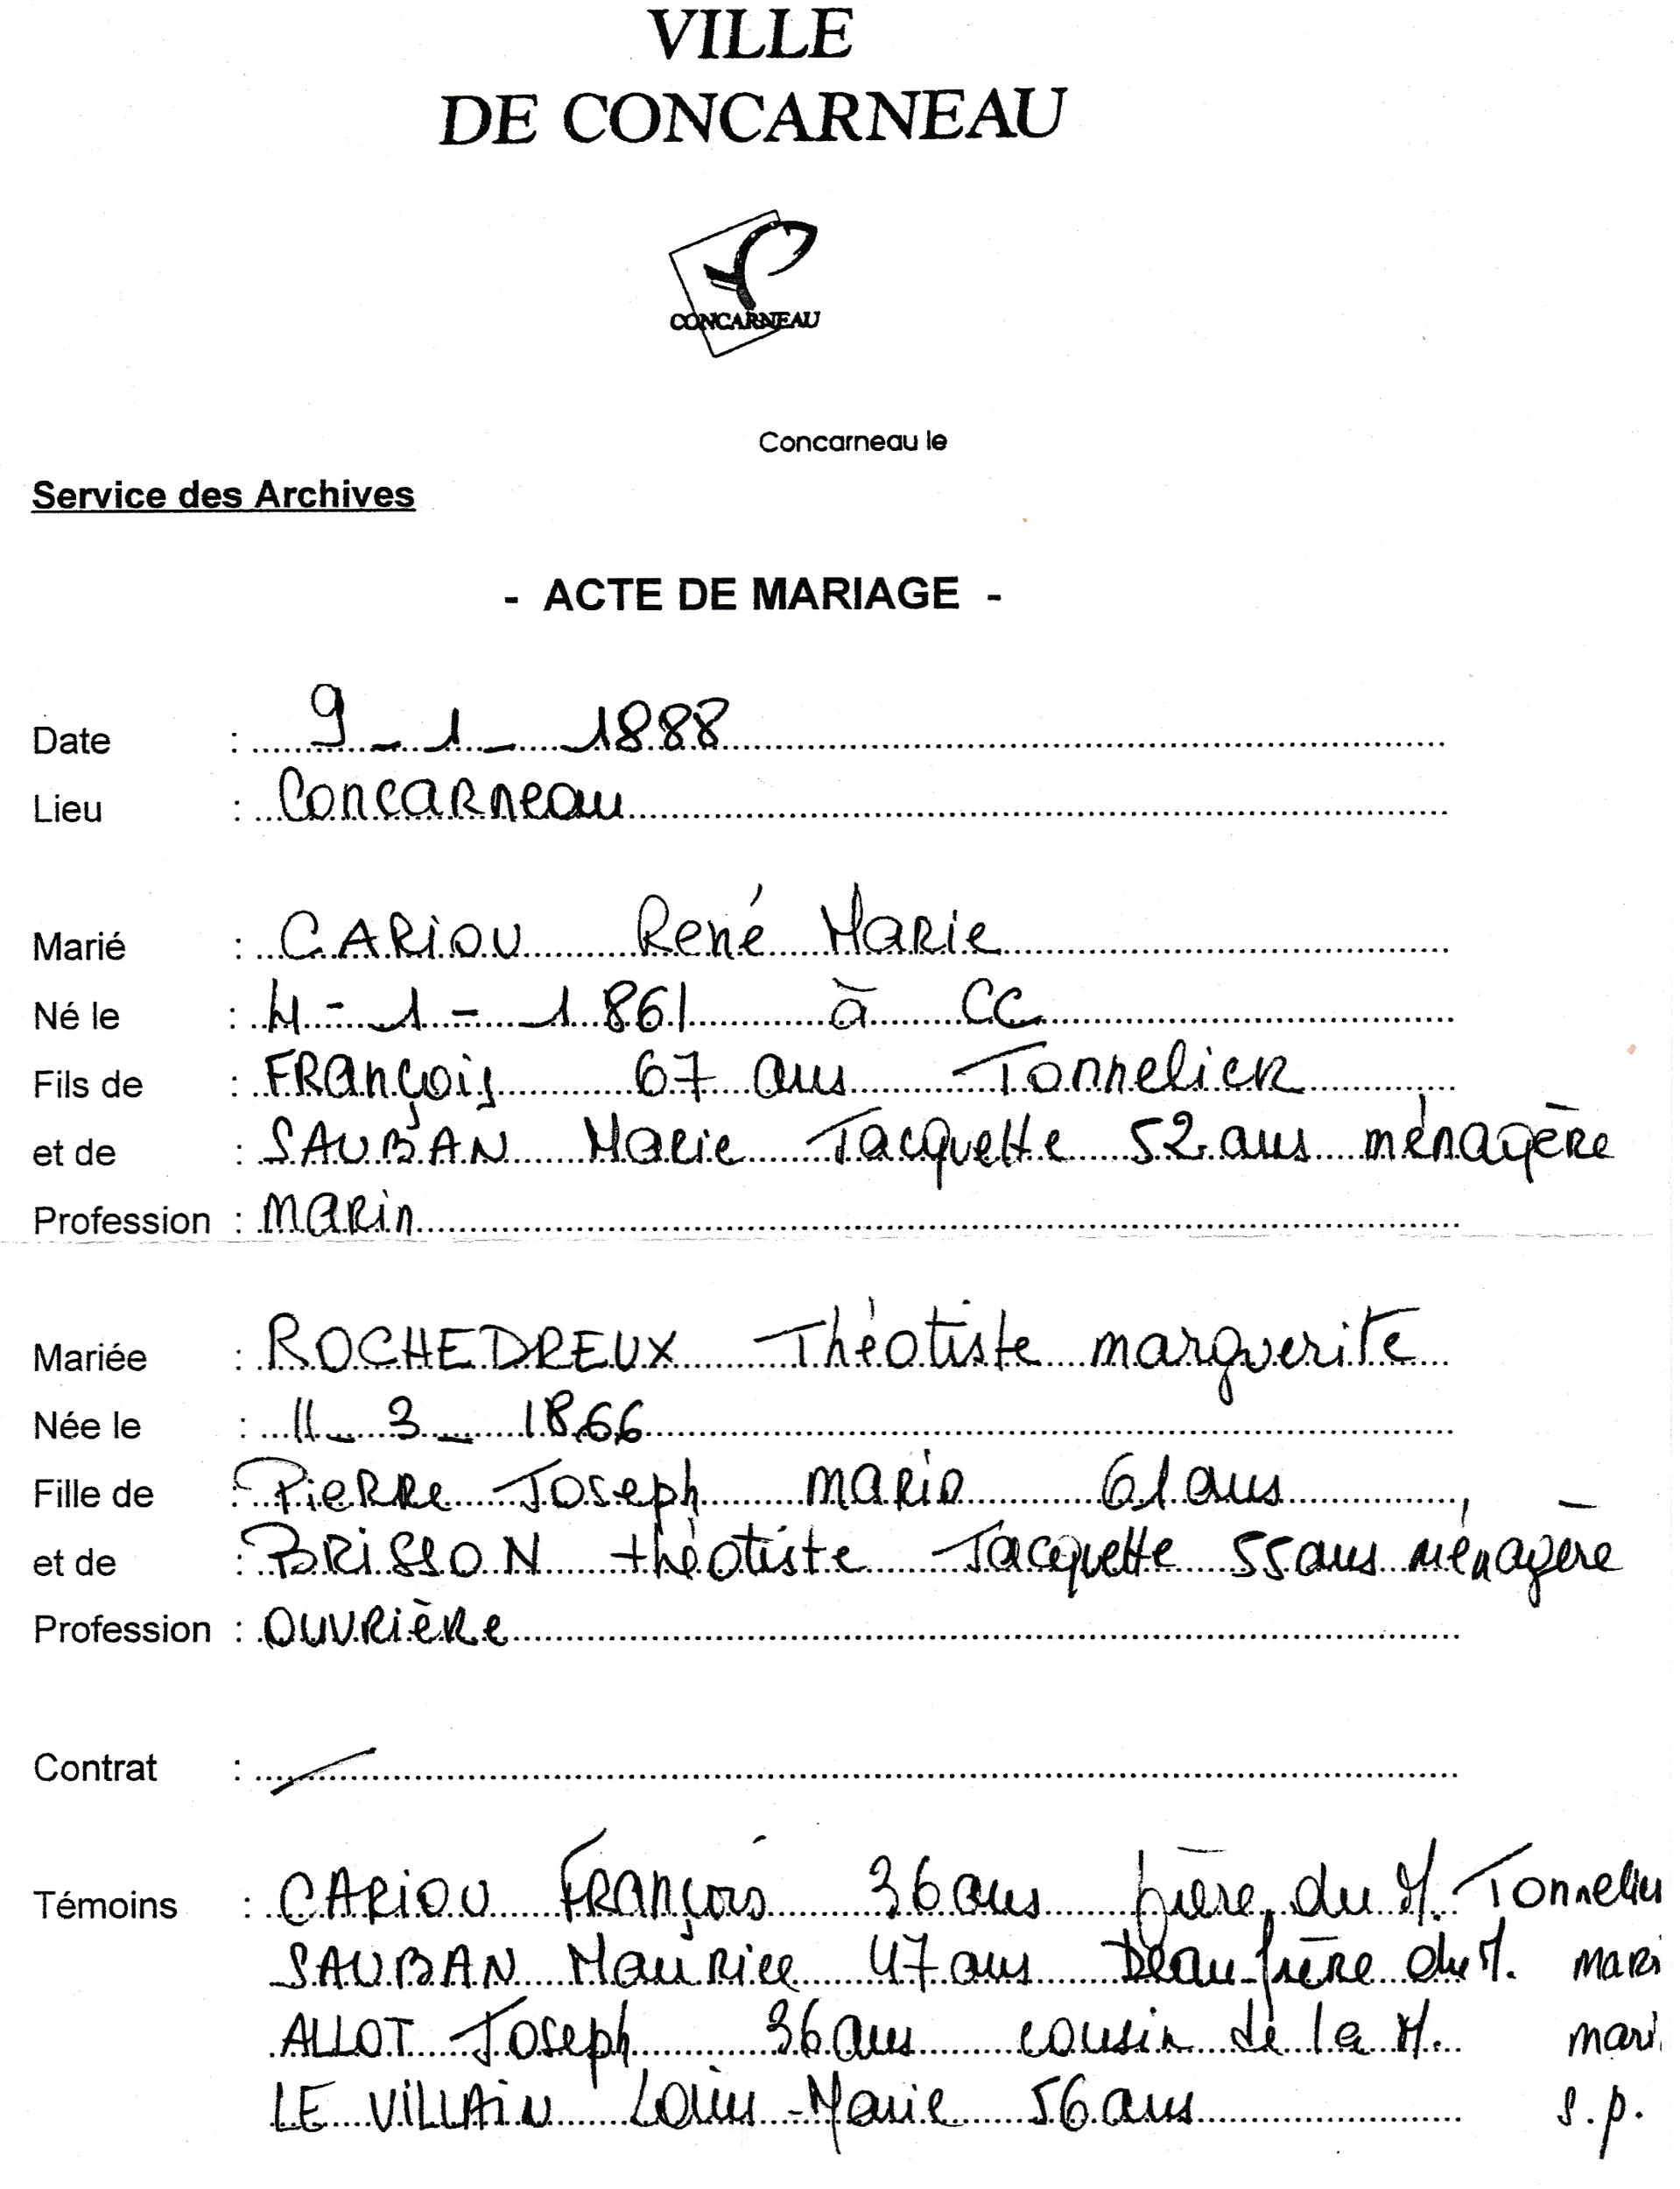 VILLE
DE CONCARNEAU
CONCARNEAU
Concarneau le
Service des Archives
- ACTE DE MARIAGE -
Date : 9 - 1 - 1888
Lieu : Concarneau
Marié : CARIOU René Marie
Né le : 4 - 1 - 1861 à CC
Fils de : François 67 ans Tonnelier
et de : SAUBAN Marie Jacquette 52 ans ménagère
Profession : marin
Mariée : ROCHEDREUX Théotiste marguerite
Née le : 11 - 3 - 1866
Fille de : Pierre Joseph marin 61 ans
et de : BRISSON théotiste Jacquette 55 ans ménagère
Profession : ouvrière
Contrat :
Témoins : CARIOU François 36 ans frère du M. Tonnelier
SAUBAN Maurice 47 ans Beau-frère du M. mari
ALLOT Joseph 36 ans cousin de la M. mari
LE VILLAIN Louis-Marie 56 ans s.p.